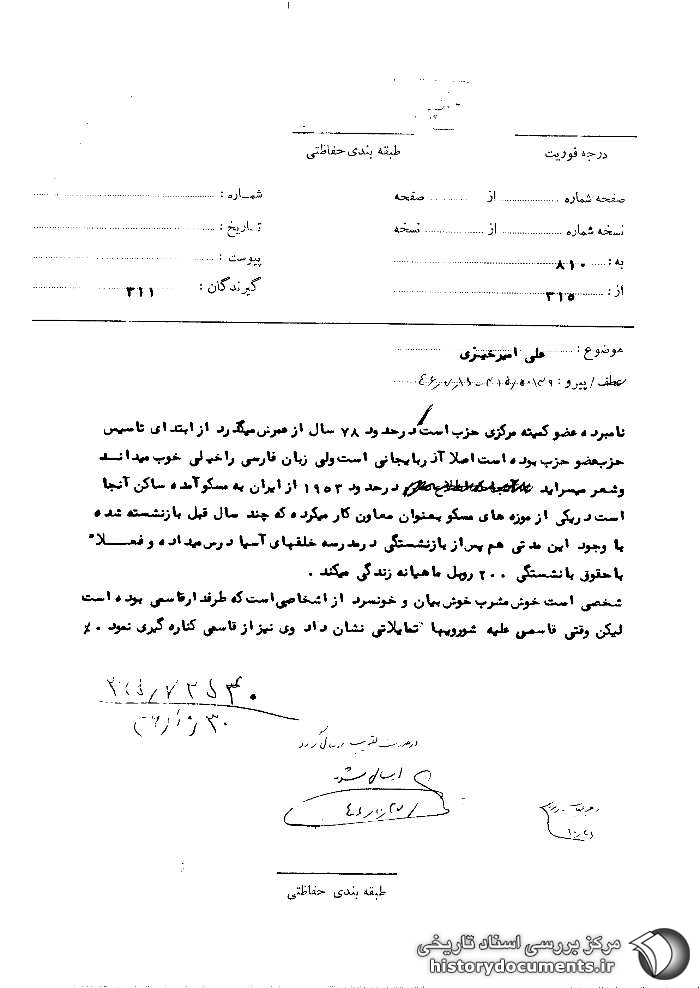 درجه فوریت
طبقه بندی حفاظتی
صفحه شماره از صفحه
شماره :
نسخه شماره از نسخه
تاریخ :
به : ۸۱۰
پیوست :
از : ۳۱۵
گیرندگان : ۳۱۱
موضوع : علی امیرخیزی
عطف / پیرو :
نامبرده عضو کمیته مرکزی حزب است در حدود ۷۸ سال از عمرش میگذرد از ابتدای تاسیس
حزب عضو حزب بوده است اصلا آذربایجانی است ولی زبان فارسی را خیلی خوب میداند
وشعر میسراید در حدود ۱۹۵۳ از ایران به مسکو آمده ساکن آنجا
است در یکی از موزه های مسکو بعنوان معاون کار میکرده که چند سال قبل بازنشسته شده
با وجود این مدتی هم پس از بازنشستگی در مدرسه خلقهای آسیا درس میداده و فعلا"
با حقوق بانشستگی ۲۰۰ روبل ماهیانه زندگی میکند .
شخصی است خوش مشرب خوش بیان و خونسرد از اشخاصی است که طرفدار قاسمی بوده است
لیکن وقتی قاسمی علیه شورویها تمایلاتی نشان داد وی نیز از قاسمی کناره گیری نمود . ٪
ارسال شود
طبقه بندی حفاظتی
مرکز بررسی اسناد تاریخی
historydocuments.ir